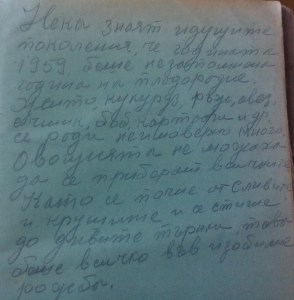 Нека знаят идущите
поколения, че годината
1959 беше незапомнена
година на плодородие.
Жито, кукуруз, ръж, овес,
ечмик, боб, картофи и др.
се роди неимоверно много,
Овощията не можаха
да се приберат всичките
Като се почне от сливите
и крушите и се стигне
до дивите търнки това
беше всичко във изобилие
родεби.